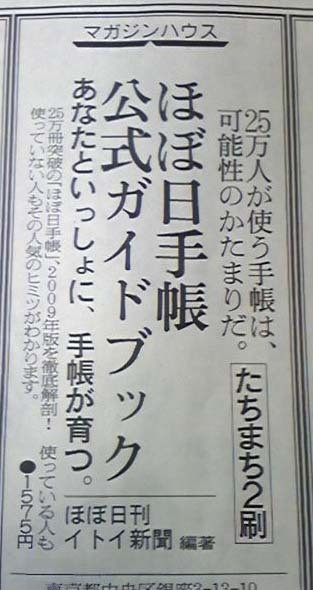 マガジンハウス
25万人が使う手帳は、
可能性のかたまりだ。
たちまち2刷
ほぼ日手帳
公式ガイドブック
あなたといっしょに、手帳が育つ。
ほぼ日刊
イトイ新聞 編著
25万冊突破の「ほぼ日手帳」、2009年版を徹底解剖! 使っている人も
使っていない人もその人気のヒミツがわかります。
●1575円
東京都中央区銀座3-13-10